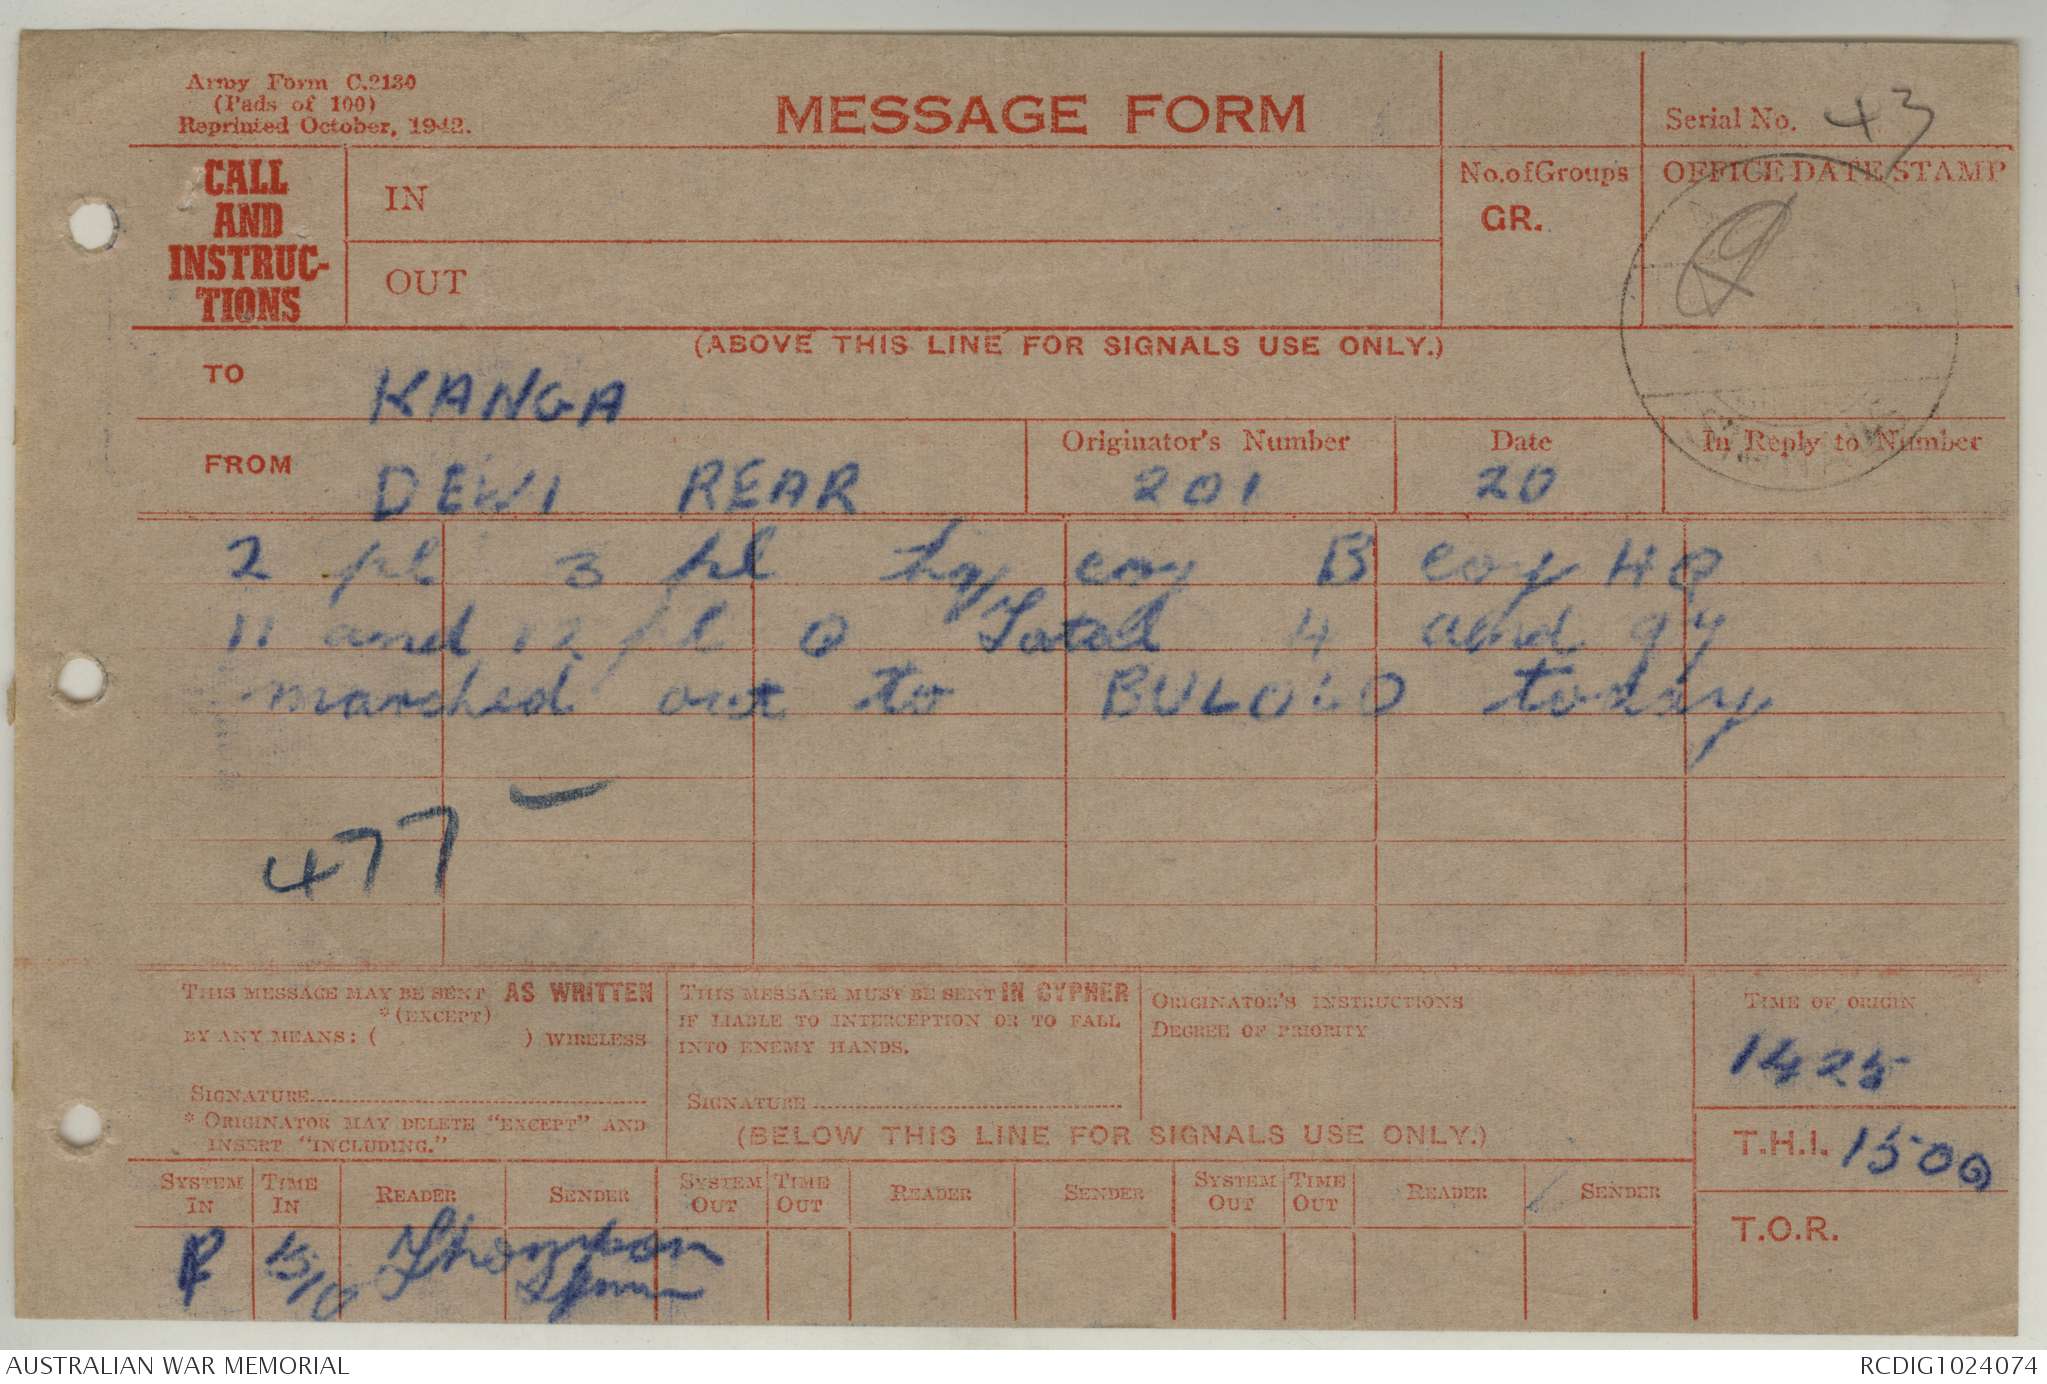 Army Form C.2130
(Pads of 100)
Reprinted October, 1942.
MESSAGE FORM
Serial No. 43
CALL
AND
INSTRUC-
TIONS
IN
OUT
No. of Groups
GR.
OFFICE DATE STAMP
(ABOVE THIS LINE FOR SIGNALS USE ONLY.)
TO KANGA
FROM DEWI REAR
Originator's Number 201
Date 20
In Reply to Number
2 pl 3 pl hq coy B coy HQ
11 and 12 pl Total 4 and 94
marched out to BULOLO today
477
THIS MESSAGE MAY BE SENT AS WRITTEN
*(EXCEPT)
BY ANY MEANS: ( ) WIRELESS
SIGNATURE
* ORIGINATOR MAY DELETE "EXCEPT" AND
INSERT "INCLUDING."
THIS MESSAGE MUST BE SENT IN CYPHER
IF LIABLE TO INTERCEPTION OR TO FALL
INTO ENEMY HANDS.
SIGNATURE
ORIGINATOR'S INSTRUCTIONS
DEGREE OF PRIORITY
TIME OF ORIGIN
1425
(BELOW THIS LINE FOR SIGNALS USE ONLY.)
T.H.I. 1500
T.O.R.
SYSTEM IN
TIME IN
READER
SENDER
SYSTEM OUT
TIME OUT
READER
SENDER
SYSTEM OUT
TIME OUT
READER
SENDER
15/10 Thompson
AUSTRALIAN WAR MEMORIAL
RCDIG1024074